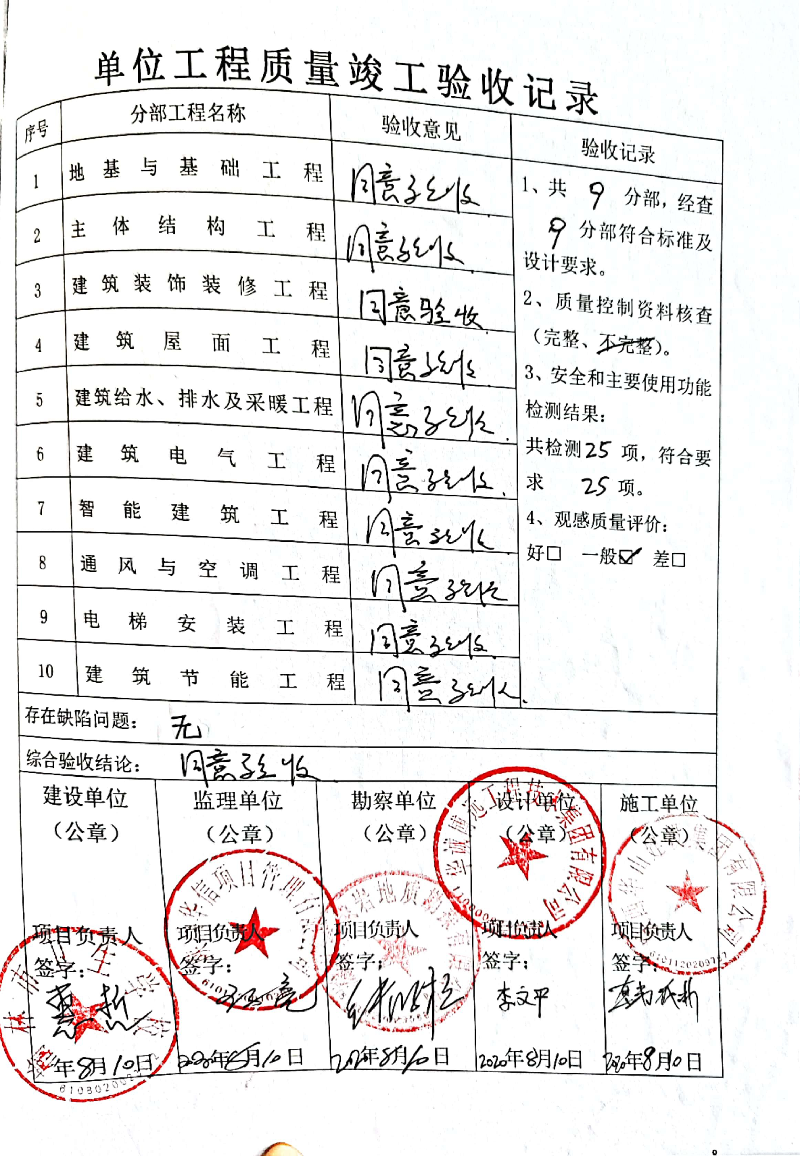 单位工程质量竣工验收记录
序号 分部工程名称 验收意见 验收记录
1 地基与基础工程 同意验收
2 主体结构工程 同意验收
3 建筑装饰装修工程 同意验收
4 建筑屋面工程 同意验收
5 建筑给水、排水及采暖工程 同意验收
6 建筑电气工程 同意验收
7 智能建筑工程 同意验收
8 通风与空调工程 同意验收
9 电梯安装工程 同意验收
10 建筑节能工程 同意验收
1、共 9 分部，经查
9 分部符合标准及
设计要求。
2、质量控制资料核查
（完整、不完整）。
3、安全和主要使用功能
检测结果：
共检测25 项，符合要
求 25 项。
4、观感质量评价：
好□ 一般☑ 差□
存在缺陷问题： 无
综合验收结论： 同意验收
建设单位 监理单位 勘察单位 设计单位 施工单位
（公章） （公章） （公章） （公章） （公章）
项目负责人 项目负责人 项目负责人 项目负责人 项目负责人
签字： 签字： 签字： 签字： 签字：
李文平
年8月10日 2020年8月10日 2020年8月10日 2020年8月10日 2020年8月10日